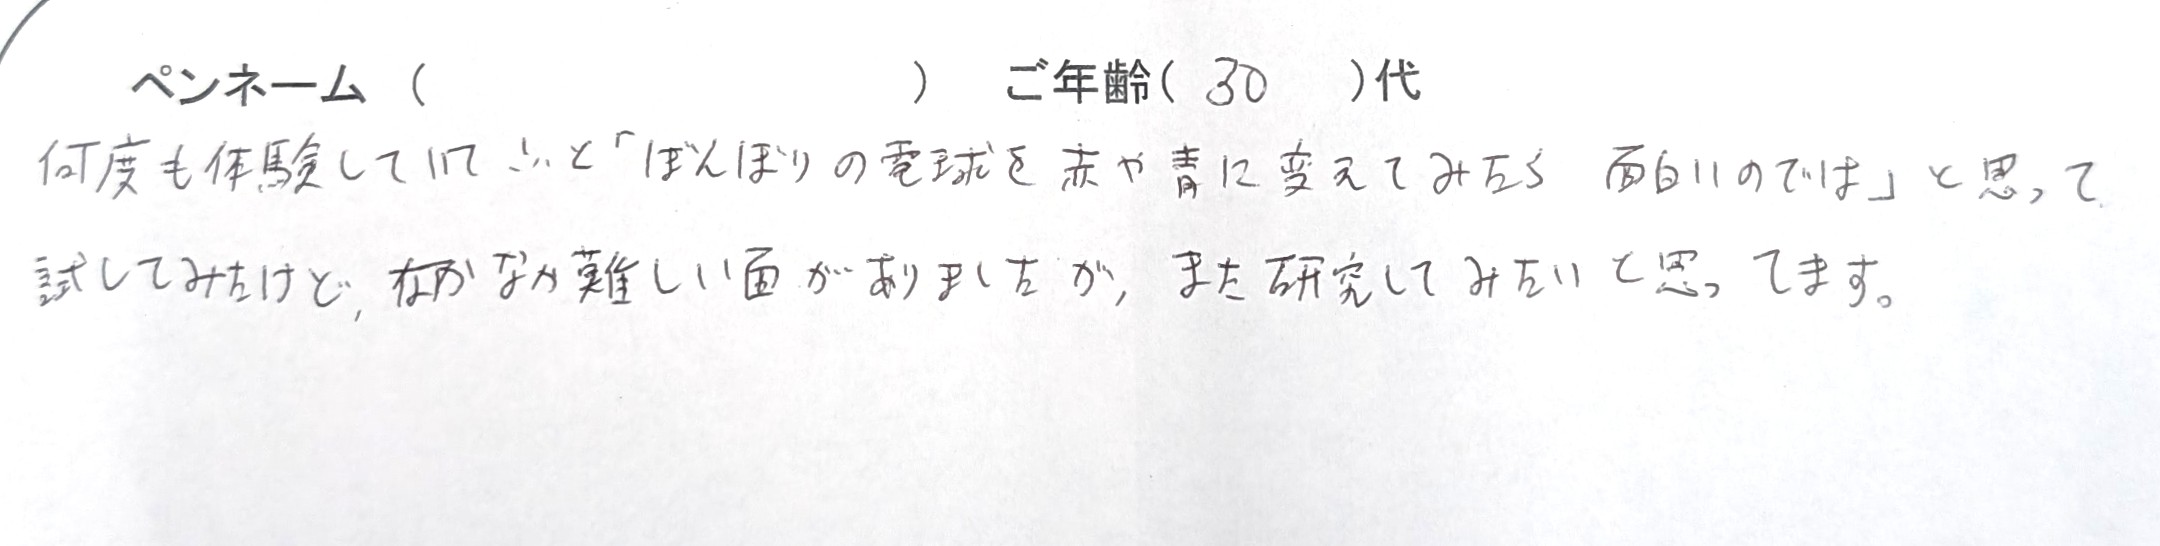 ペンネーム（　　　　　　　　　　）　ご年齢（ 30　）代
何度も体験していてふと「ぼんぼりの電球を赤や青に変えてみたら 面白いのでは」と思って
試してみたけど, なかなか難しい面がありましたが, また研究してみたいと思ってます。